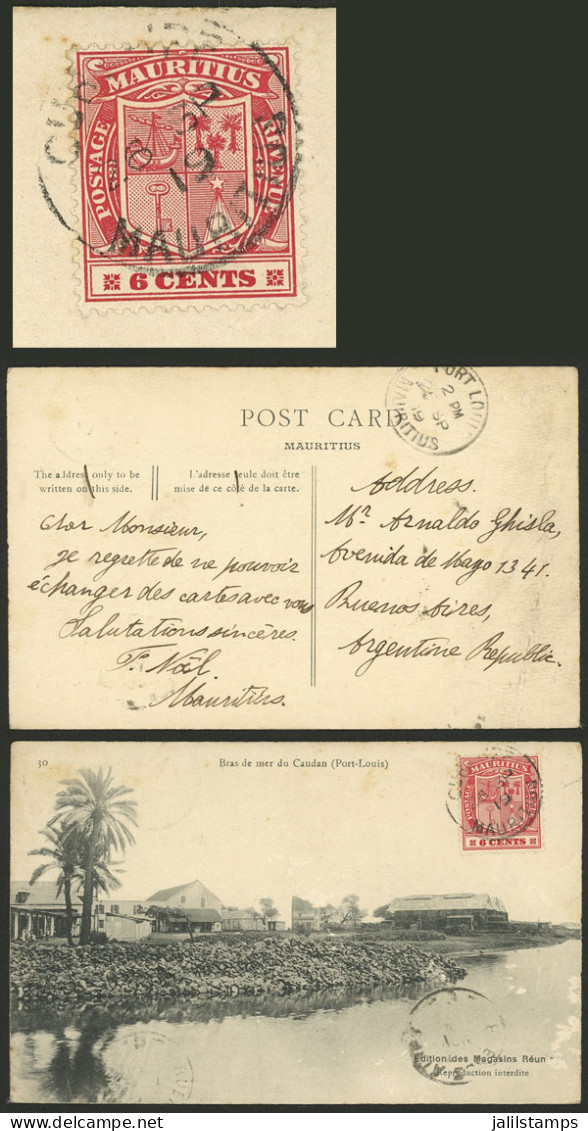 MAURITIUS
POSTAGE
REVENUE
19
MAURIT
6 CENTS
PORT LOUIS
2 PM
SP
19
MAURITIUS
POST CARD
MAURITIUS
The address only to be
written on this side.
L'adresse seule doit être
mise de ce côté de la carte.
Address.
Mr. Arnaldo Ghisla,
Avenida de Mayo 1341.
Buenos Aires,
Argentine Republic.
Cher Monsieur,
je regrette de ne pouvoir
échanger des cartes avec vous
Salutations sincères.
F. Noël.
Mauritius.
30
Bras de mer du Caudan (Port-Louis)
MAURITIUS
POSTAGE
REVENUE
19
MAURIT
6 CENTS
Edition des Magasins Réun
Reproduction interdite
jalilstamps.com